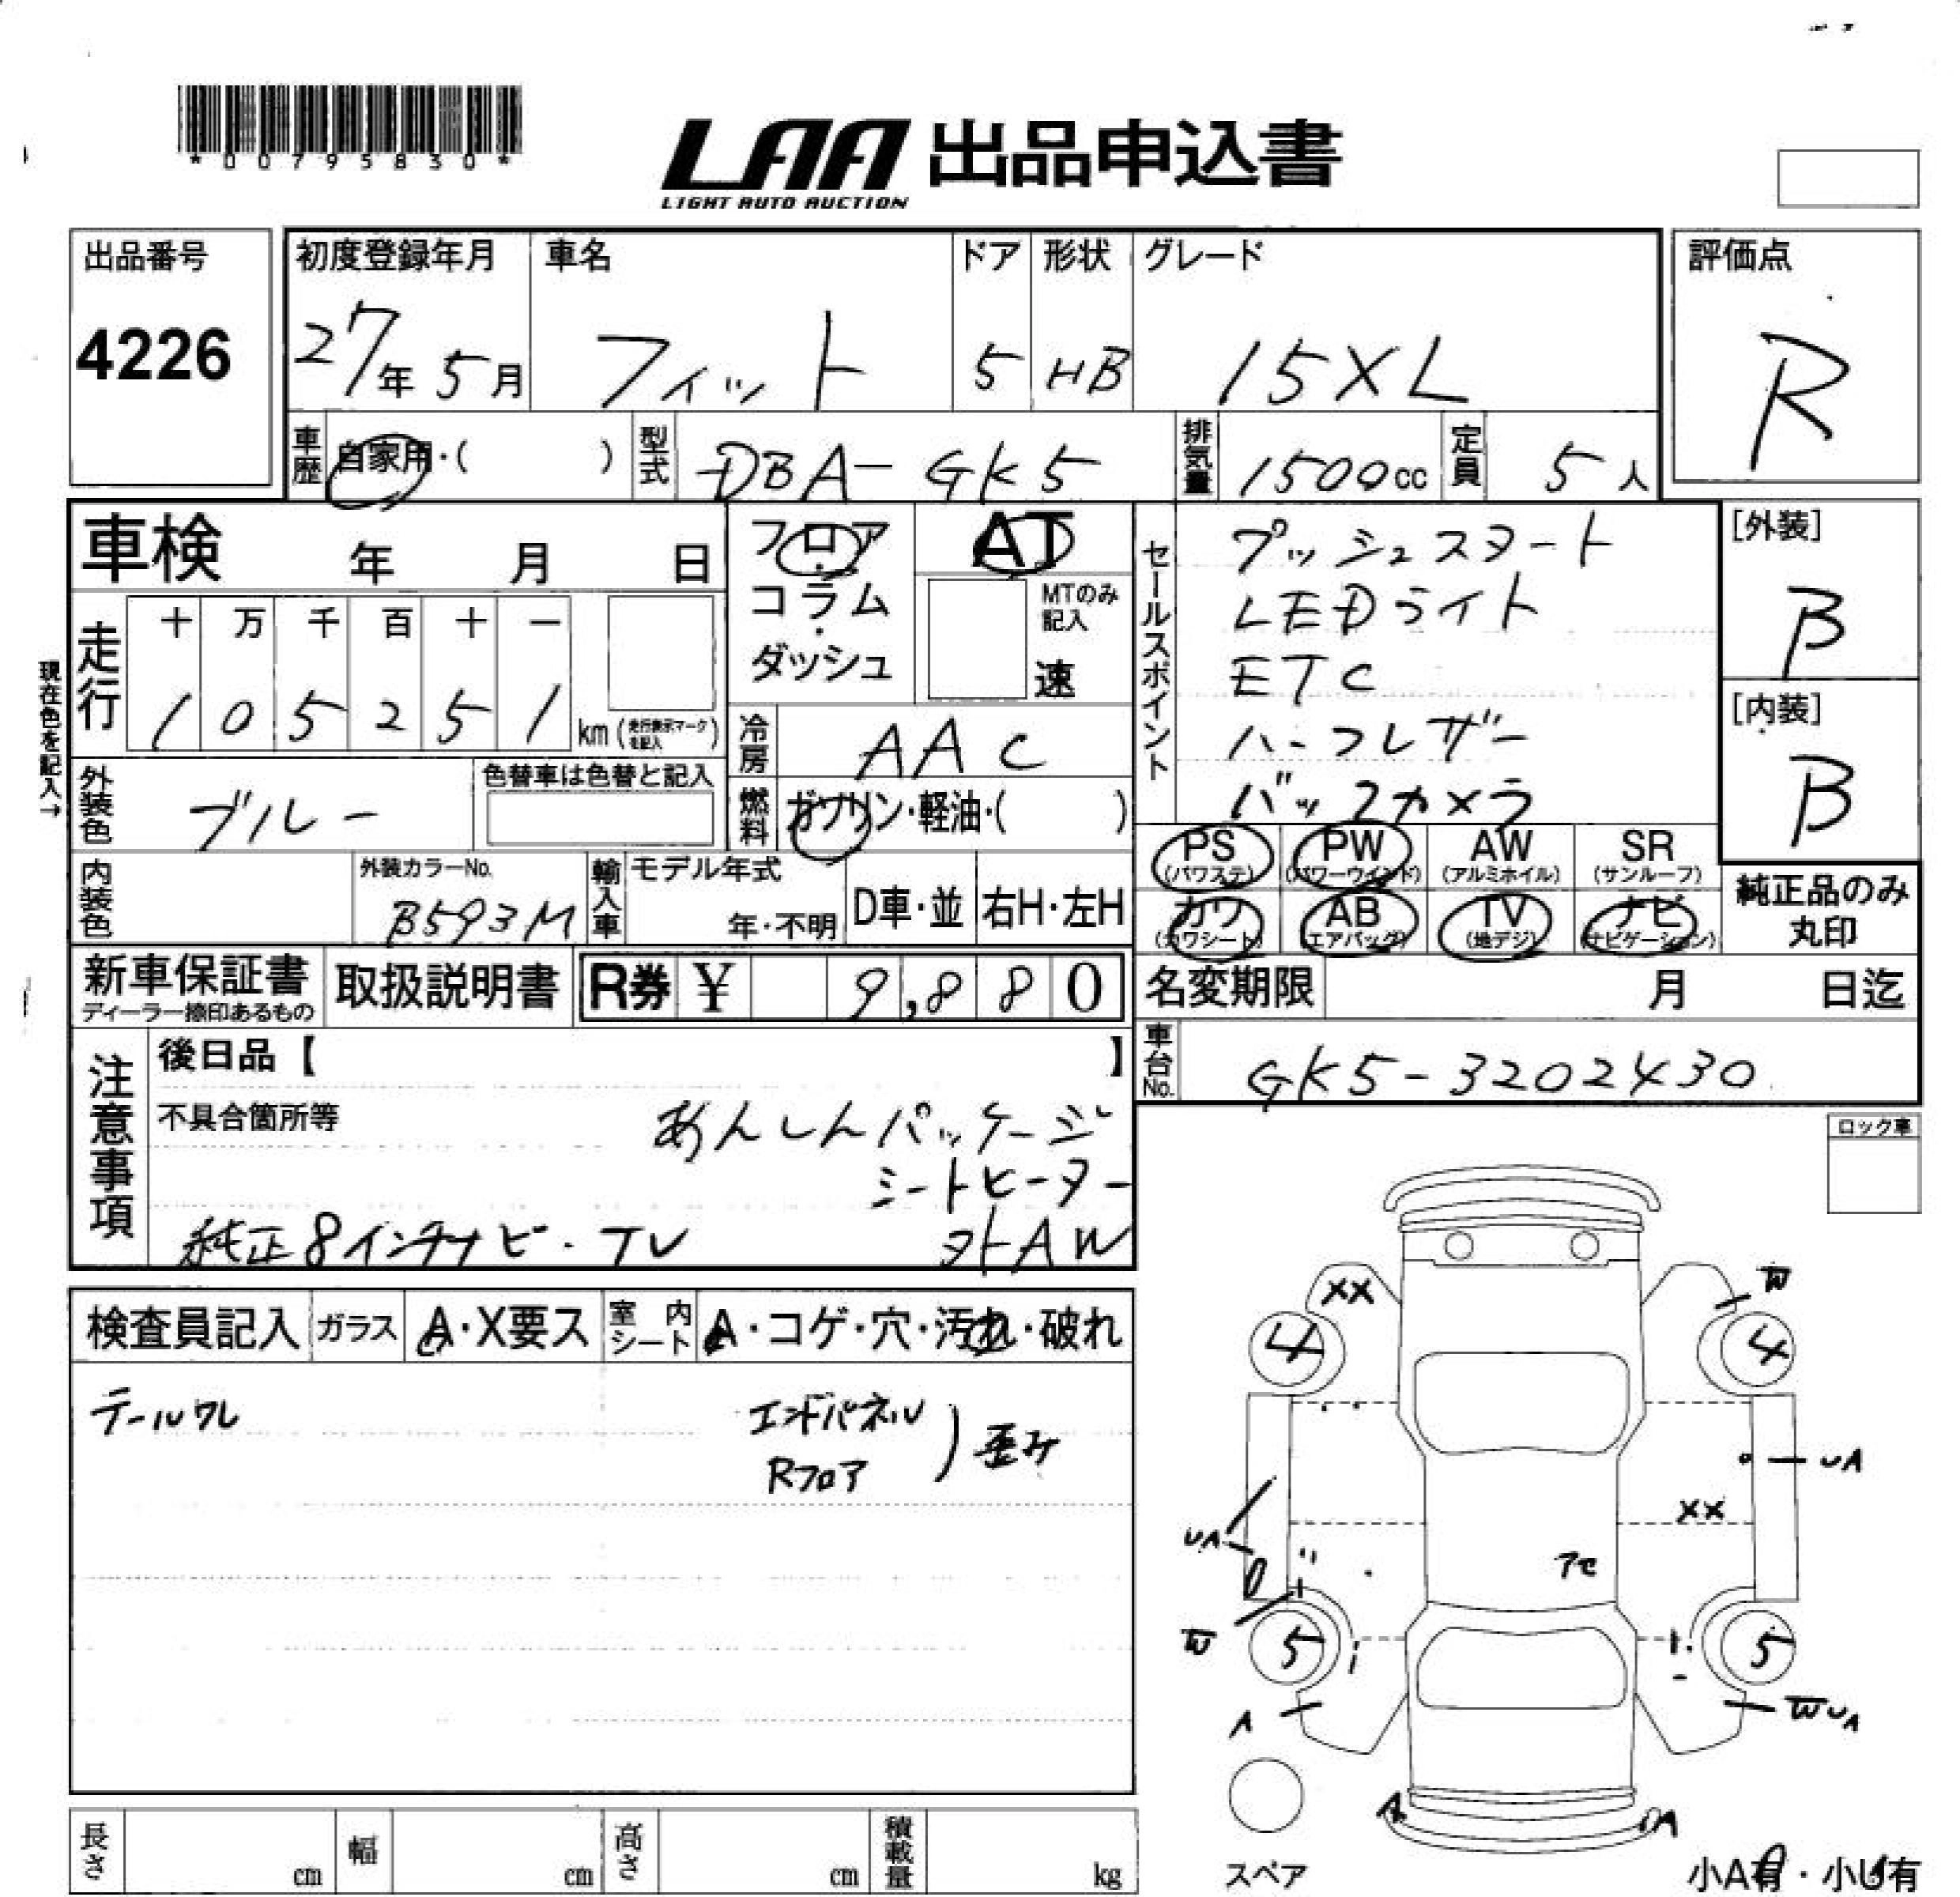 *00795830*
LAA 出品申込書
LIGHT AUTO AUCTION
出品番号
4226
初度登録年月
27年 5月
車名
フィット
ドア
5
形状
HB
グレード
15XL
評価点
R
車歴 自家用・( )
型式 DBA-GK5
排気量 1500cc
定員 5人
車検 年 月 日
フロア・コラム・ダッシュ
AT
MTのみ記入
速
セールスポイント
プッシュスタート
LEDライト
ETC
ハーフレザー
バックカメラ
[外装]
B
[内装]
B
現在色を記入→
走行
十 万 千 百 十 一
1 0 5 2 5 1 km (走行表示マークを記入)
冷房 AAC
外装色 ブルー
色替車は色替と記入
燃料 ガソリン・軽油・( )
内装色
外装カラーNo.
B593M
輸入車 モデル年式
年・不明
D車・並
右H・左H
PS (パワステ)
PW (パワーウインド)
AW (アルミホイル)
SR (サンルーフ)
カワ (カワシート)
AB (エアバッグ)
TV (地デジ)
ナビ (ナビゲーション)
純正品のみ丸印
新車保証書
ディーラー捺印あるもの
取扱説明書
R券 ¥ 9,880
名変期限 月 日迄
車台No. GK5-3202430
注意事項
後日品【 】
不具合箇所等
あんしんパッケージ
シートヒーター
純正8インチナビ・TV
社外AW
ロック車
検査員記入
ガラス A・X要ス
室内シート A・コゲ・穴・汚れ・破れ
テールワレ
エンドパネル
Rフロア
歪み
XX
W
4
4
UA
XX
UA
アセ
W
5
5
A
WUA
A
A
スペア
小A有・小U有
長さ cm
幅 cm
高さ cm
積載量 kg